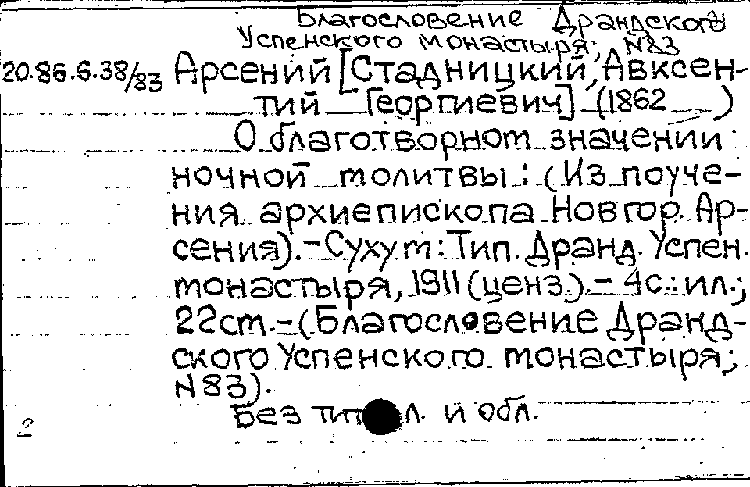 Благословение Драндского
Успенского монастыря; N83
20.86.6.38/83 Арсений [Стадницкий, Авксен-
тий Георгиевич] (1862 )
О благотворном значении
ночной молитвы: (Из поуче-
ния архиепископа Новгор. Ар-
сения). - Сухум: Тип. Дранд. Успен.
монастыря, 1911 (ценз.). - 4с.: ил.;
22cm. - (Благословение Дранд-
ского Успенского монастыря;
N83).
Без тит л. и обл.
2